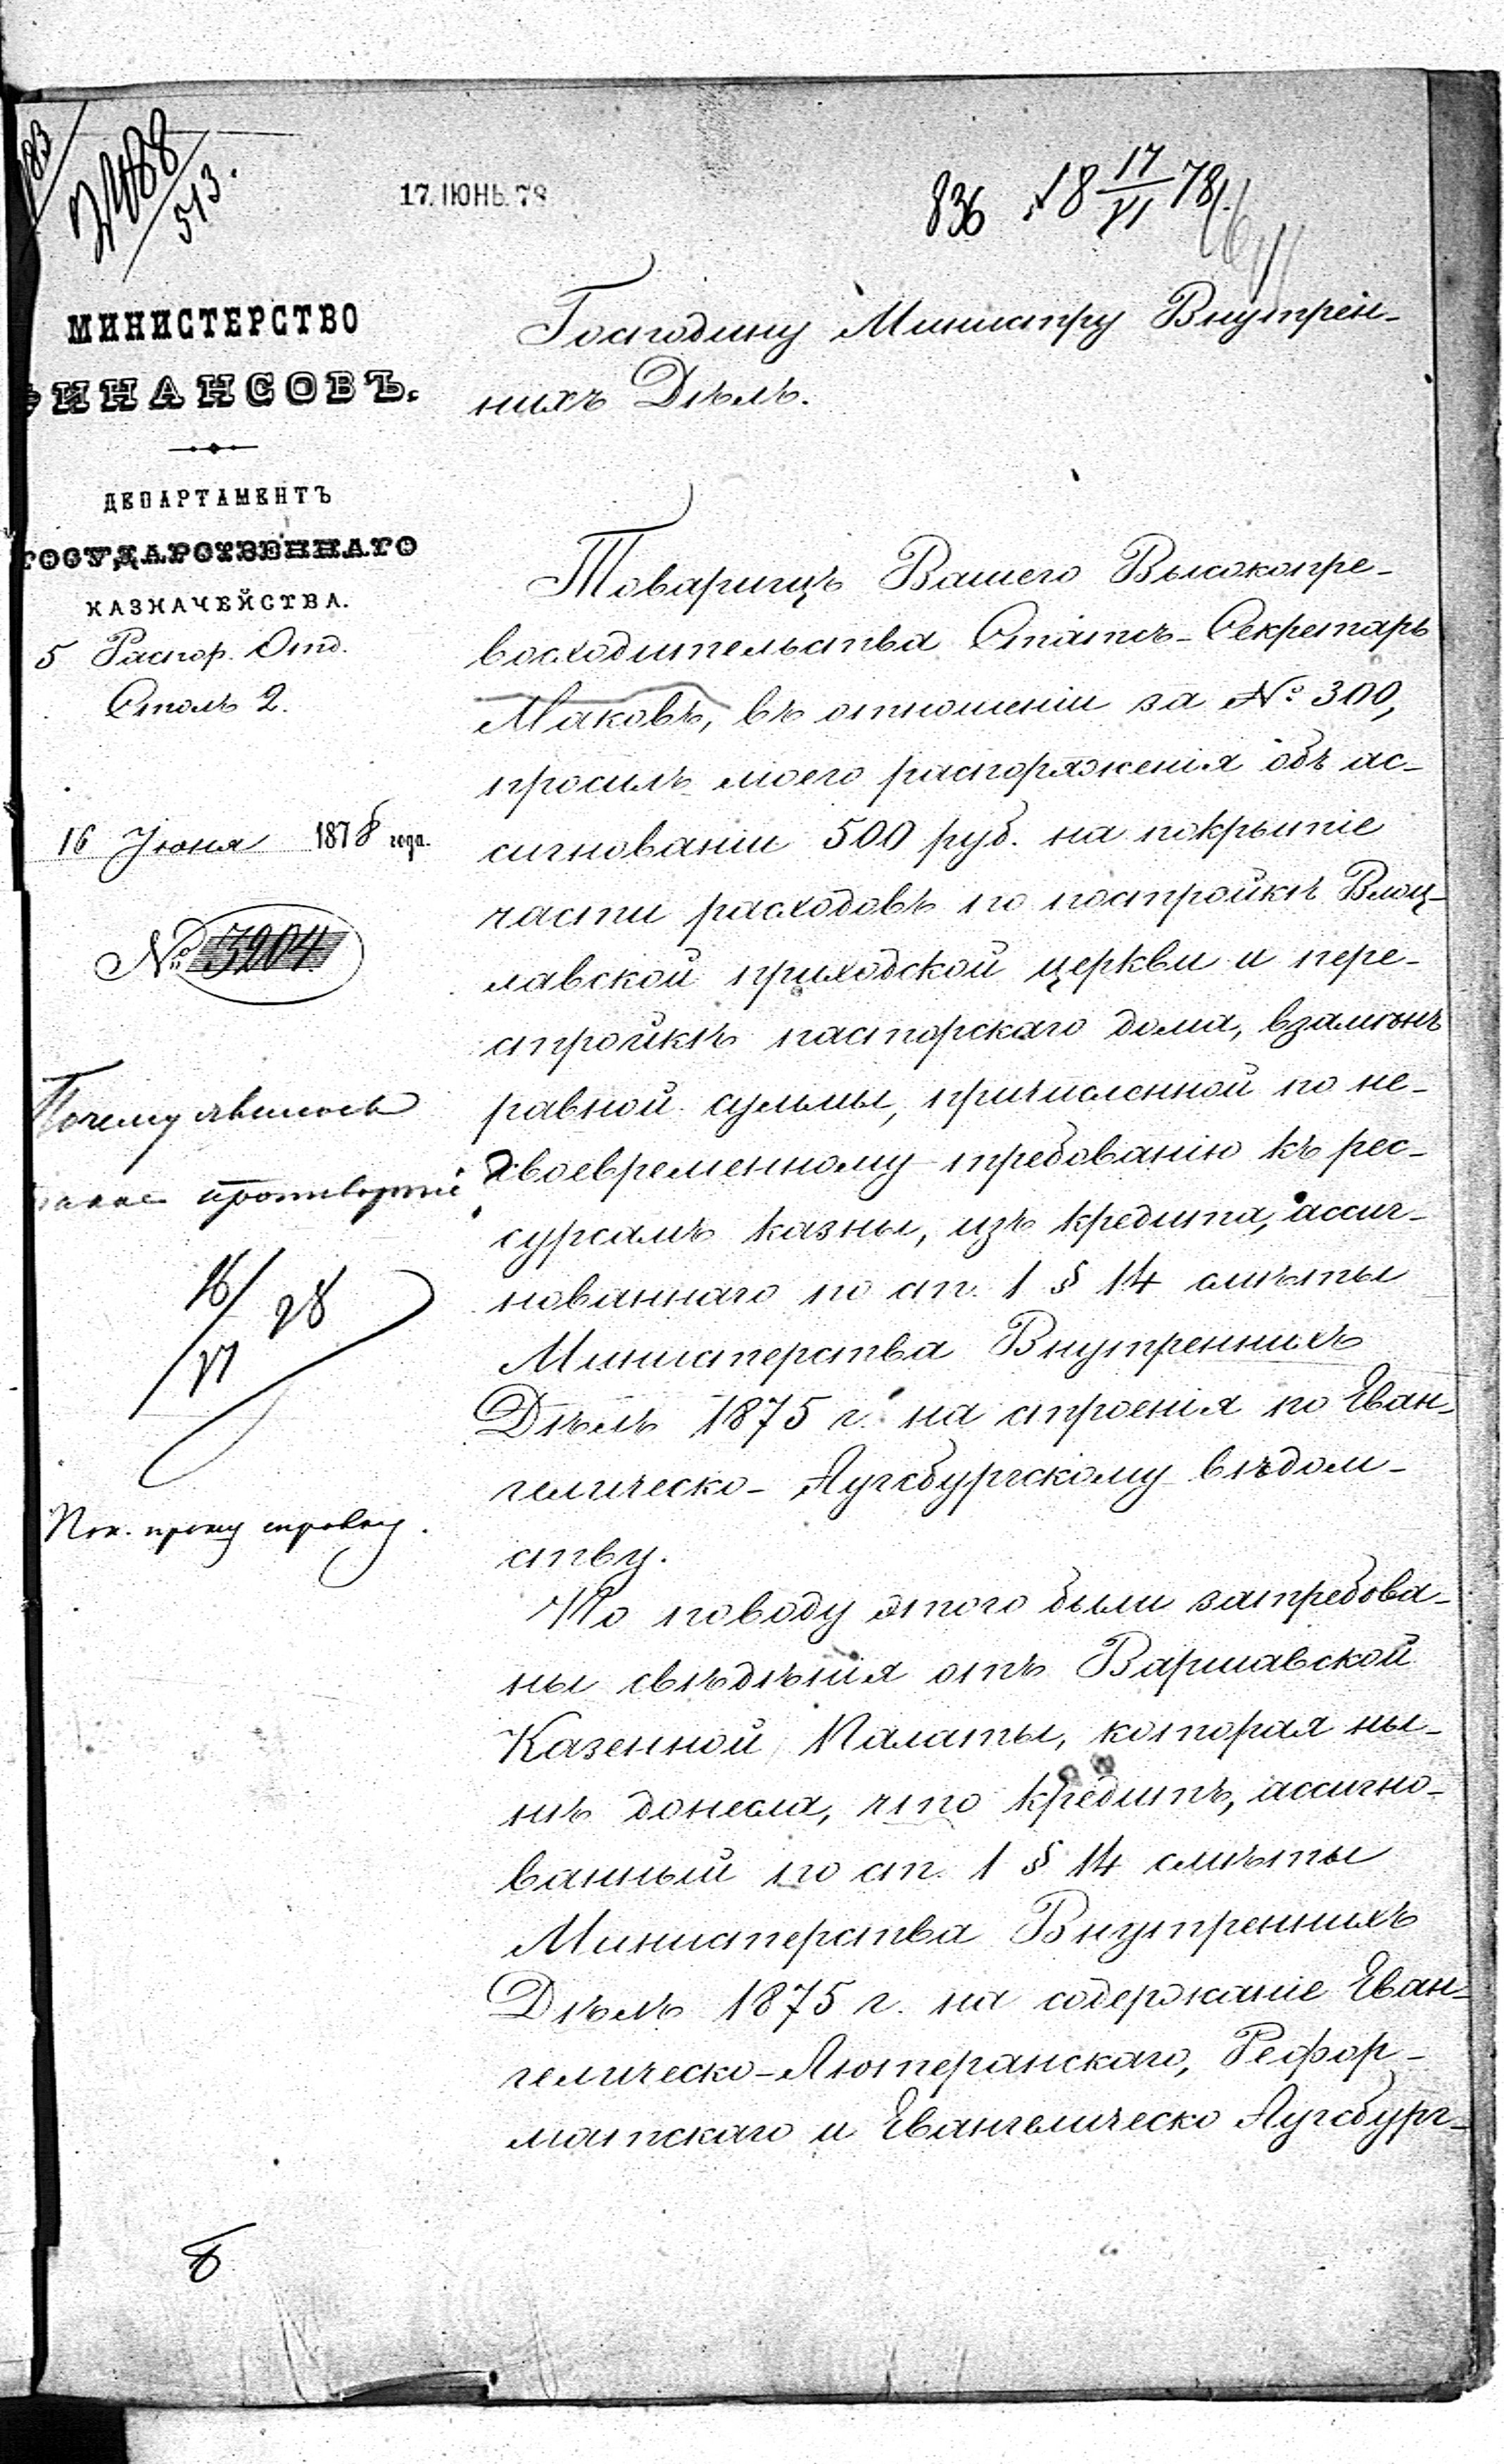 2488
513.
17. ІЮНЬ. 78
836 18 17/VI 78 г.
МИНИСТЕРСТВО
ФИНАНСОВЪ.
ДЕПАРТАМЕНТЪ
ГОСУДАРСТВЕННАГО
КАЗНАЧЕЙСТВА.
5 Распор. Отд.
Столъ 2.
16 Іюня 1878 года.
№ 3204
Почему явилось
такое противорѣчіе
18/VI 78
Пок. прошу справку.
Господину Министру Внутрен-
нихъ Дѣлъ.
Товарищъ Вашего Высокопре-
восходительства Статсъ-Секретарь
Маковъ, въ отношеніи за № 300,
просилъ моего распоряженія объ ас-
сигнованіи 500 руб. на покрытіе
части расходовъ по постройкѣ Влоц-
лавской приходской церкви и пере-
стройкѣ пасторскаго дома, взамѣнъ
равной суммы, причисленной по не-
своевременному требованію къ рес-
сурсамъ казны, изъ кредита, ассиг-
нованнаго по ст. 1 § 14 смѣты
Министерства Внутреннихъ
Дѣлъ 1875 г. на строенія по Еван-
гелическо-Аугсбургскому вѣдом-
ству.
По поводу этого были затребова-
ны свѣдѣнія отъ Варшавской
Казенной Палаты, которая ны-
нѣ донесла, что кредитъ, ассигно-
ванный по ст. 1 § 14 смѣты
Министерства Внутреннихъ
Дѣлъ 1875 г. на содержаніе Еван-
гелическо-Лютеранскаго, Рефор-
матскаго и Евангелическо Аугсбург-
8